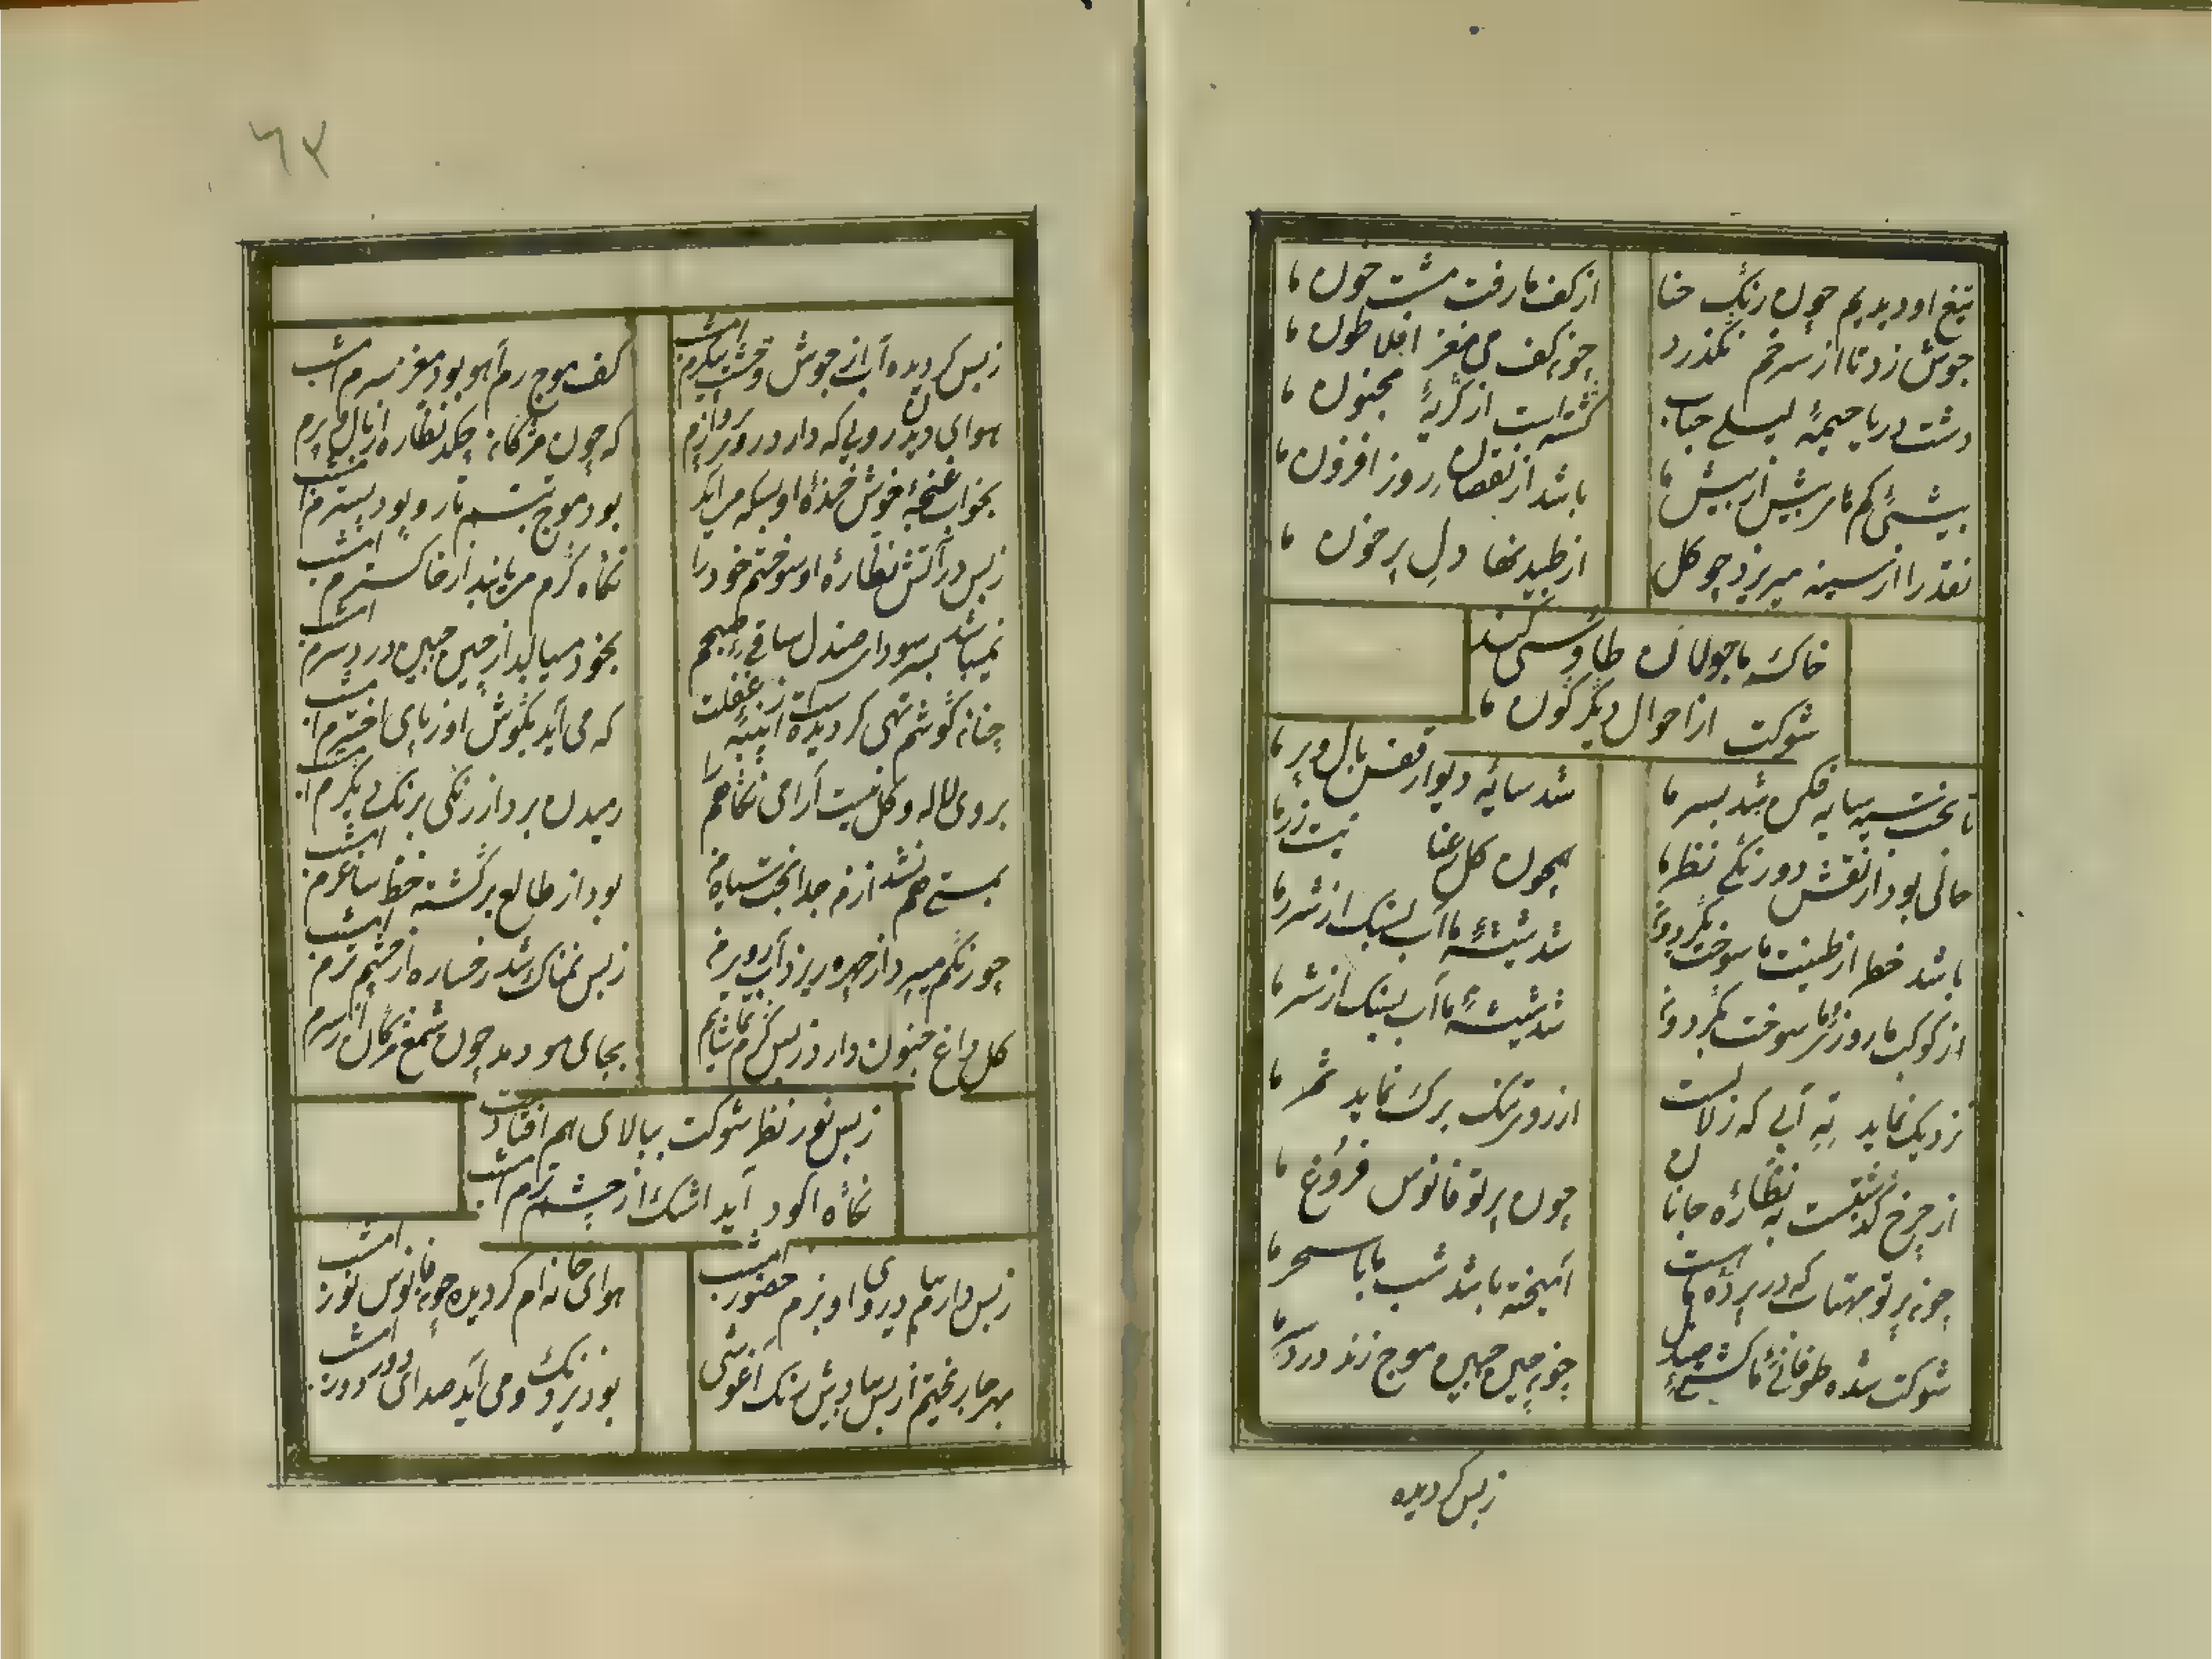 تیغ او دیدیم چون رنگ حنا
از کف ما رفت مشت خون ما
جوش زد تا از سر خم نگذرد
چون کف می مغز افلاطون ما
دشت دریا خیمهٔ لیلی حباب
گشته است از گریهٔ مجنون ما
بیشئ کم نامر بیش از بیش ما
باشد از نقصان روز افزون ما
نقد را از سینه میریزد چو کل
از طپیدنها دل پر خون ما
خاک ما جولان طاوسی کند
شوکت از احوال دیگرگون ما
تا بخت سیه سایه فکن شد بسر ما
شد سایهٔ دیوار قفس بال و پر ما
خالی بود از نقش دورنگی نظر ما
همچون کل رعنا نیست زر ما
باشد خطر از طینت ما سوخت
شد شیشهٔ ما آب بسنک از شرر ما
از کوکب ما روز سوخت
شد شیشهٔ ما آب بسنک از شرر ما
نزدیک نماید ته آبی که زلالست
از زو تنک برک نماید ثمر ما
از چرخ گذشتست به نظارهٔ جانان
چون پرتو فانوس فروغ ما
چون پرتو مهتاب که در پردهٔ است
آمیخته باشد شب ما با سحر ما
شوکت شده طوفانئ ما کشتی صندل
چون چین جبین موج زند درد سر ما
زبس کردیده
٦٣
زبس کردیده آب از جوش وحشت پیکرم امشب
کف موج رم آهو بود مغز سرم امشب
هوای دیدن رویی که دارد در پروازم
که چون مژگان چکد نظاره از بال و پرم امشب
بخواب غنچهٔ خوش خندهٔ او بسکه می آید
بود موج تبسم تار و پود بسترم امشب
زبس در آتش نظارهٔ او سوختم خود را
نگاه گرم می یابند از خاکسترم امشب
نمیباشد بسر سودای صندل ساقی صبحم
بخود میبالد از چین جبین درد سرم امشب
چنان گوشم تهی کردیده است از پنبهٔ غفلت
که می آید بگوش آواز پای اخترم امشب
بروی لاله و کل نیست آرامی نگاهم را
رمیدن برد از رنگی برنک دیگرم امشب
بمستی هم نشد از من جدا بخت سیاه من
بود از طالع برگشته خط ساغرم امشب
چو رنگم میپرد از چهره ریزد آب رو بر من
زبس نمناک شد رخساره از چشم ترم امشب
کل داغ جنون دارد زبس گرم تماشایم
بجای مو دمد چون شمع مژگان از سرم امشب
زبس نور نظر شوکت ببالای هم افتادست
نگاه آلود آید اشک از چشم ترم امشب
زبس دارم بیاد روی او بزم حضور امشب
هوای خانه ام کردیده چون فانوس نور امشب
بهر جا ریختیم از بس بیادش رنک آغوشی
بود نزدیک و می آید صدای دور دور امشب